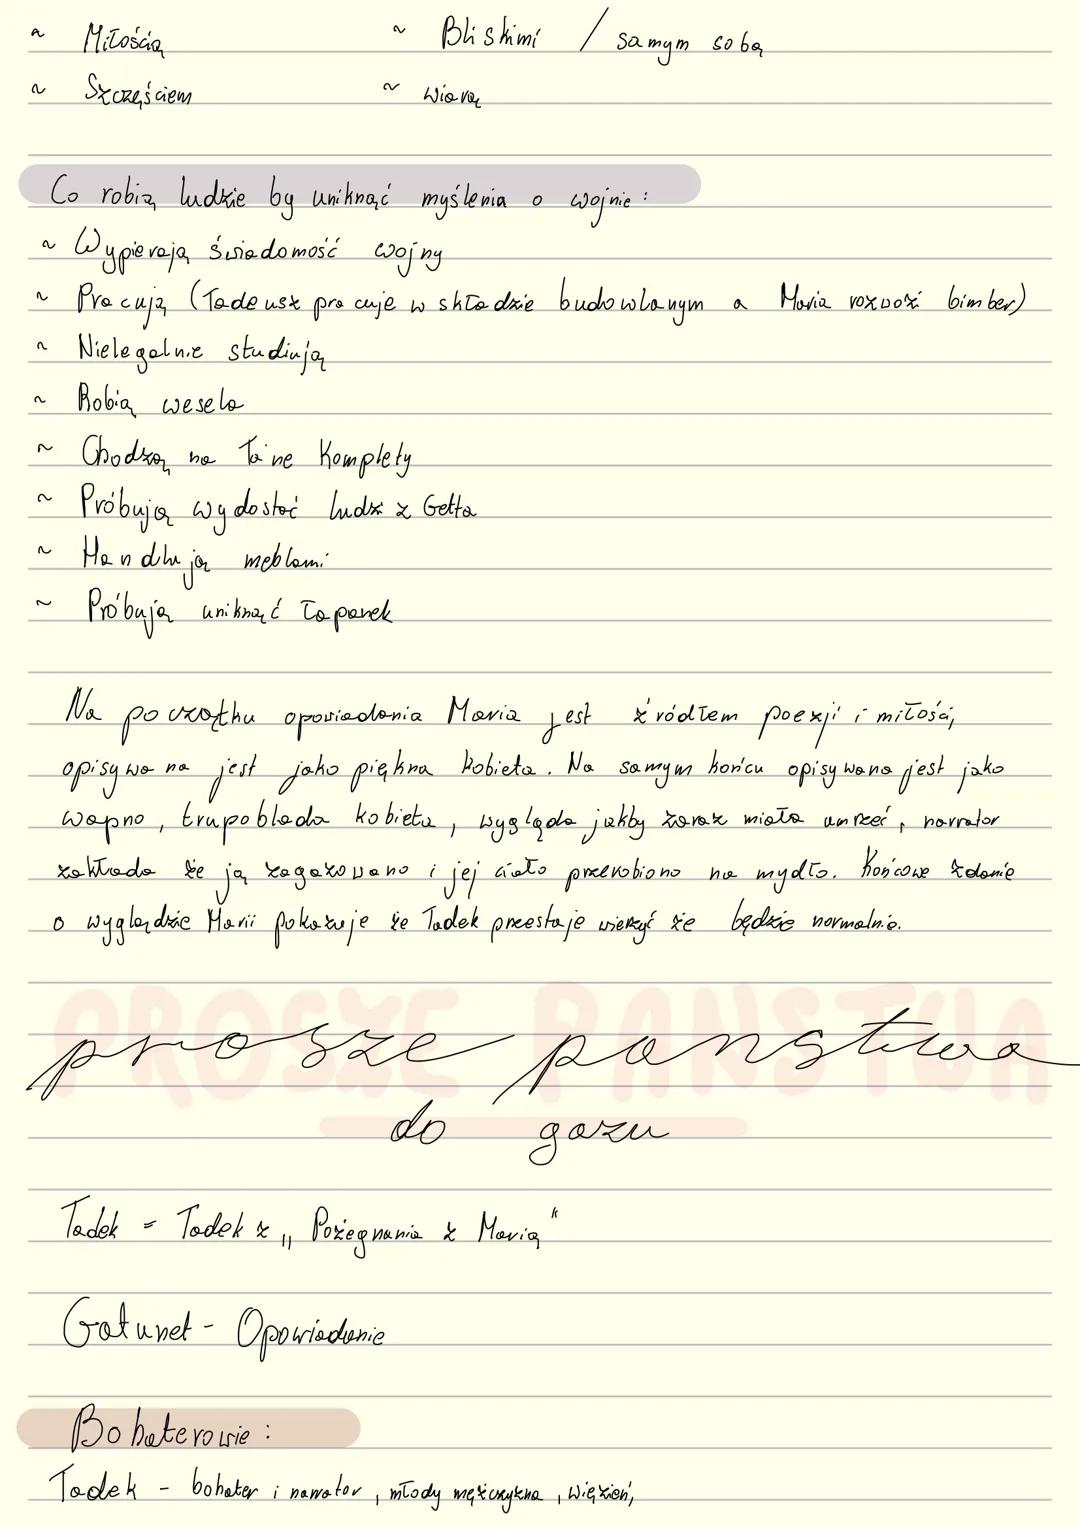 ~ Miłością ~ Bliskimi / samym sobą
~ Szczęściem ~ wiarą
Co robią ludzie by uniknąć myślenia o wojnie :
~ Wypierają świadomość wojny
~ Pracują (Tadeusz pracuje w składzie budowlanym a Maria rozwozi bimber)
~ Nielegalnie studiują
~ Robią wesela
~ Chodzą na Tajne Komplety
~ Próbują wydostać ludzi z Getta
~ Handlują meblami
~ Próbują uniknąć łapanek
Na początku opowiadania Maria jest źródłem poezji i miłości,
opisywana jest jako piękna kobieta. Na samym końcu opisywana jest jako
wapno, trupoblada kobieta, wygląda jakby zaraz miała umrzeć, narrator
zakłada że ją zagazowano i jej ciało przerobiono na mydło. Końcowe zdanie
o wyglądzie Marii pokazuje że Tadek przestaje wierzyć że będzie normalnie.
PROSZE PANSTWA
prosze panstwa
do gazu
Tadek = Tadek z „Pożegnania z Marią"
Gatunet - Opowiadanie
Bohaterowie :
Tadek - bohater i narrator, młody mężczyzna, więzień,